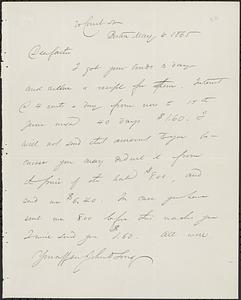 Boston May 6 1865
Dear father
I got your bonds to day
and enclose a receipt for them. Interest
@ 4 cents a day from now to 15th
June next 40 days $1.60. I
will not send that amount to you be-
cause you may deduct it from
the price of the $800. and
send me $6.40. In case you have
sent me 8.00 before this reaches you
I will send you $1.60. All well
Yr affec John D Long